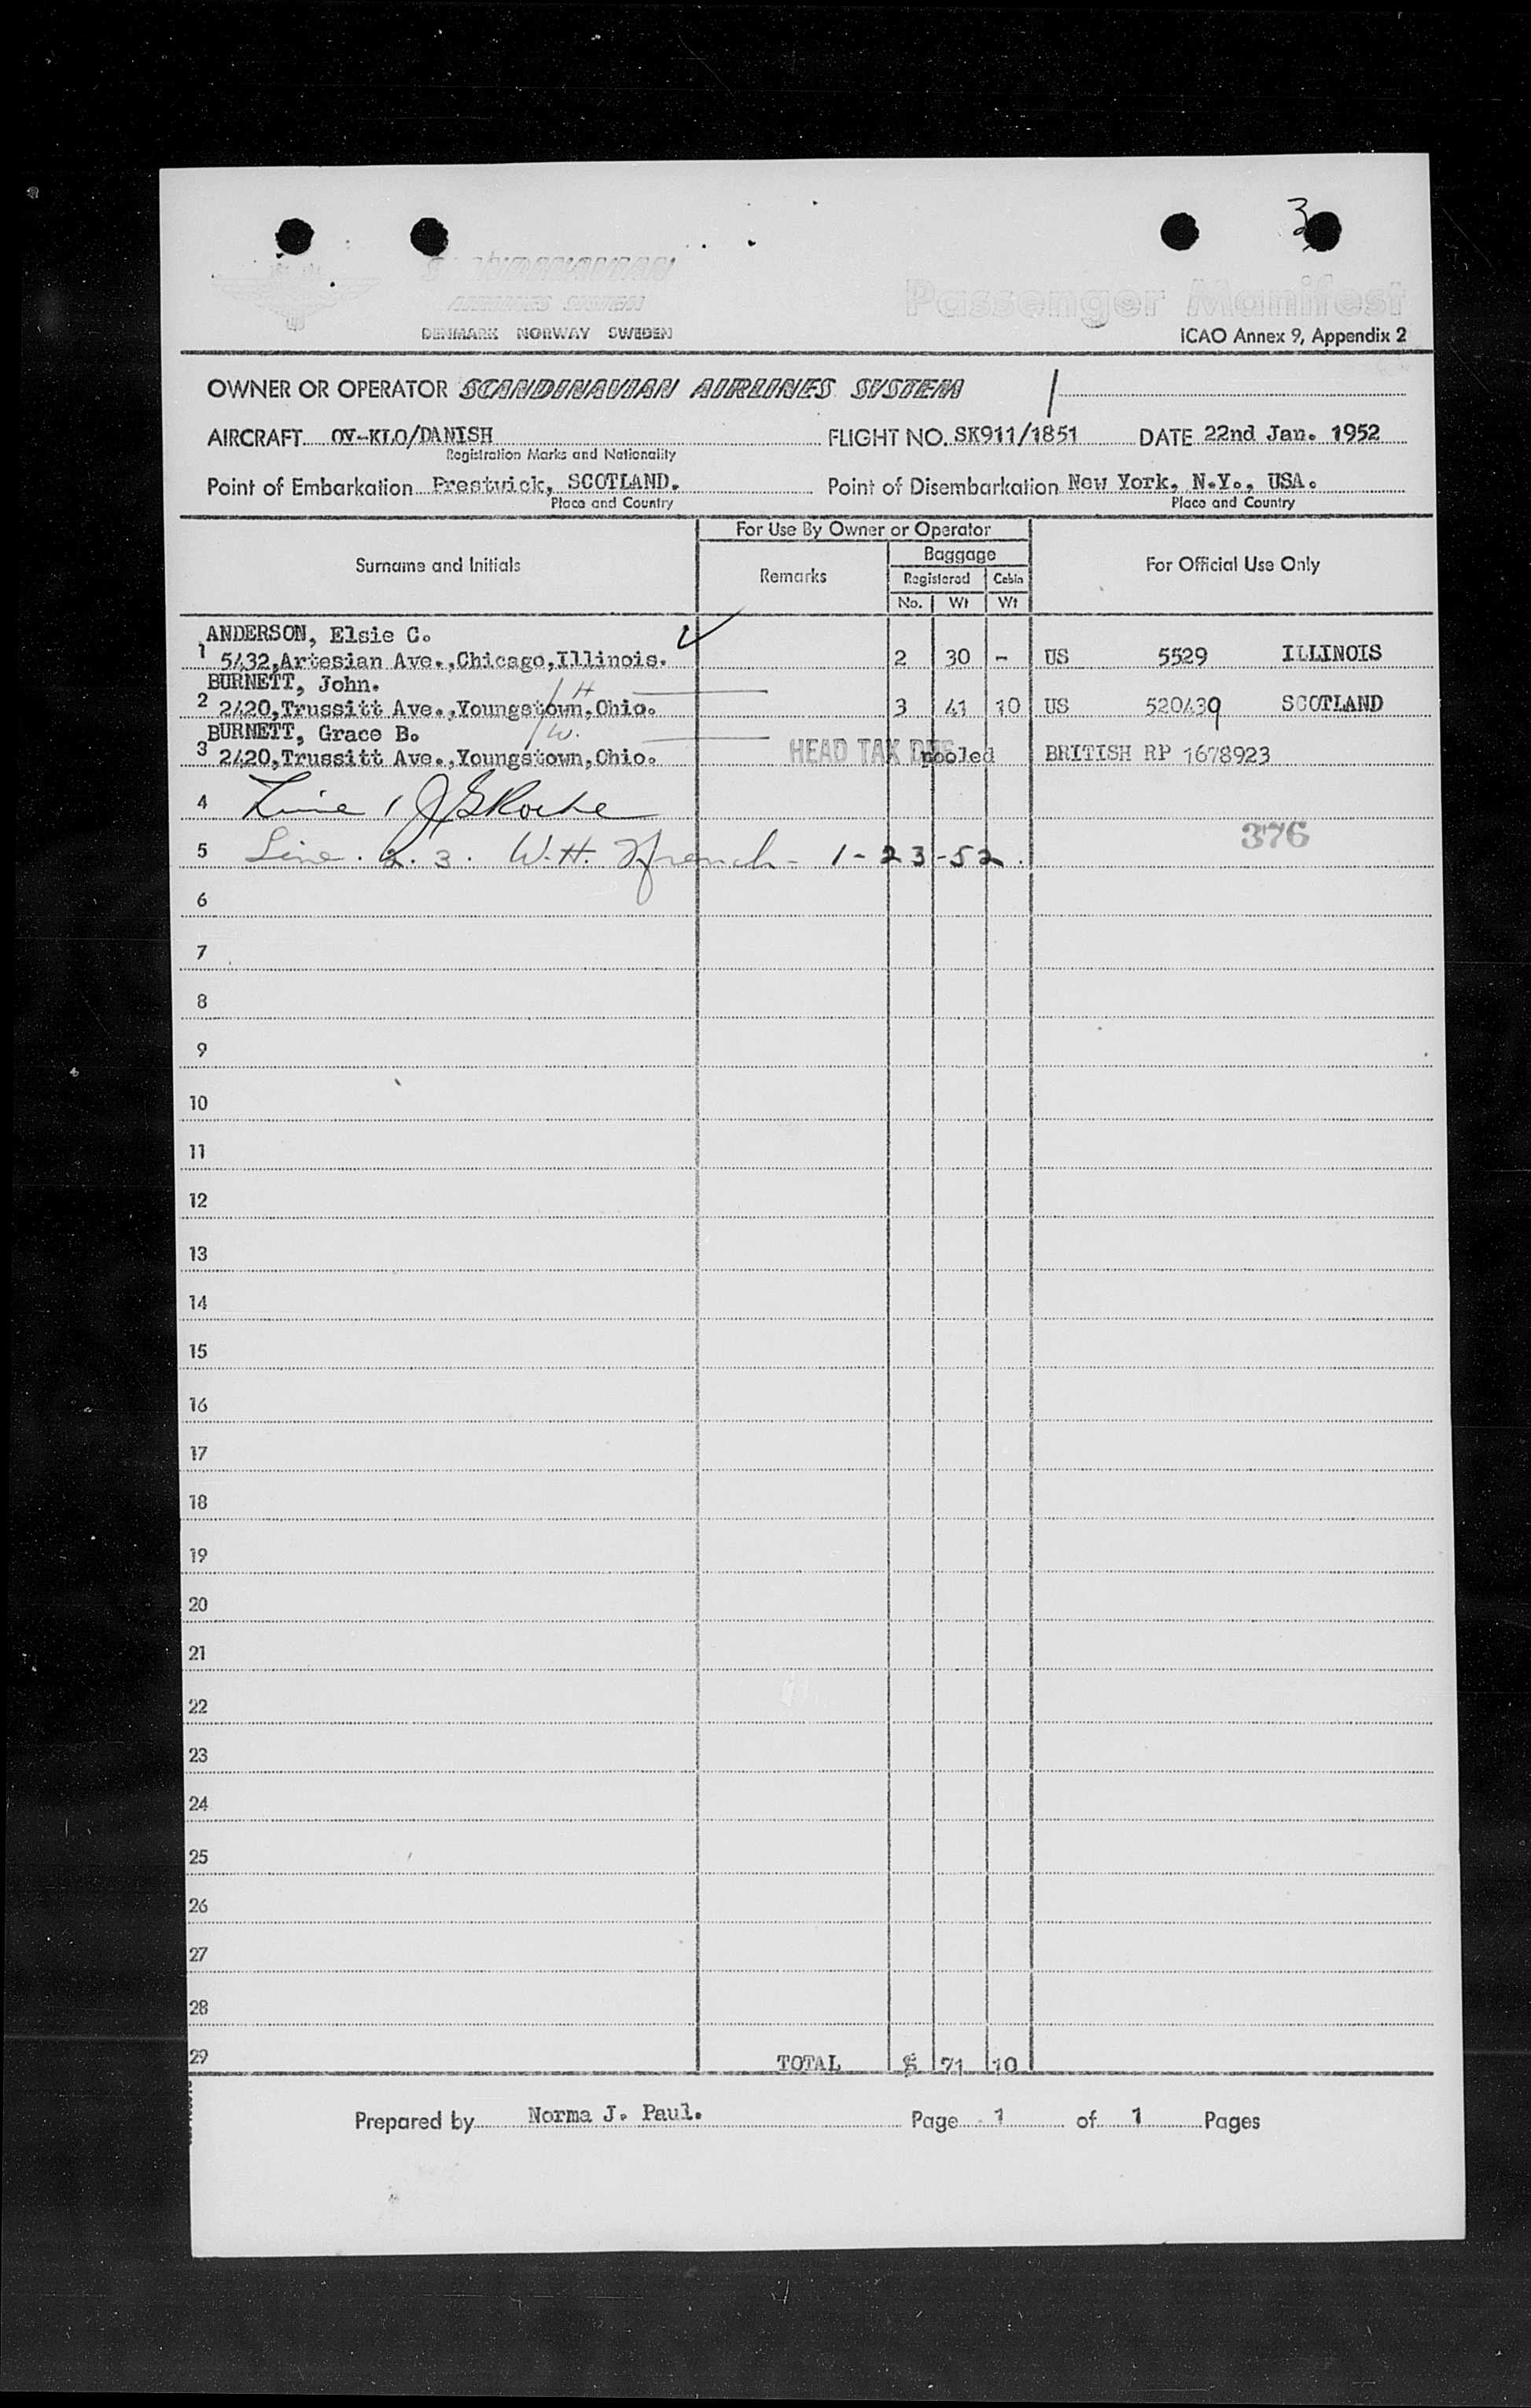 3
SCANDINAVIAN
AIRLINES SYSTEM
DENMARK NORWAY SWEDEN
Passenger Manifest
ICAO Annex 9, Appendix 2
OWNER OR OPERATOR SCANDINAVIAN AIRLINES SYSTEM
AIRCRAFT OY-KLO/DANISH FLIGHT NO. SK911/1851 DATE 22nd Jan. 1952
Registration Marks and Nationality
Point of Embarkation Prestwick, SCOTLAND. Point of Disembarkation New York, N.Y., USA.
Place and Country Place and Country
For Use By Owner or Operator
Surname and Initials Remarks Baggage For Official Use Only
Registered Cabin
No. Wt Wt
ANDERSON, Elsie C.
1 5432,Artesian Ave.,Chicago,Illinois. 2 30 - US 5529 ILLINOIS
BURNETT, John. H
2 2420,Trussitt Ave.,Youngstown,Ohio. 3 41 10 US 520439 SCOTLAND
BURNETT, Grace B. W.
3 2420,Trussitt Ave.,Youngstown,Ohio. HEAD TAX DUE pooled BRITISH RP 1678923
4 Line 1 JG Roche
376
5 Line. 2. 3. W.H. French - 1-23-52.
6
7
8
9
10
11
12
13
14
15
16
17
18
19
20
21
22
23
24
25
26
27
28
29 TOTAL 5 71 10
Prepared by Norma J. Paul. Page 1 of 1 Pages